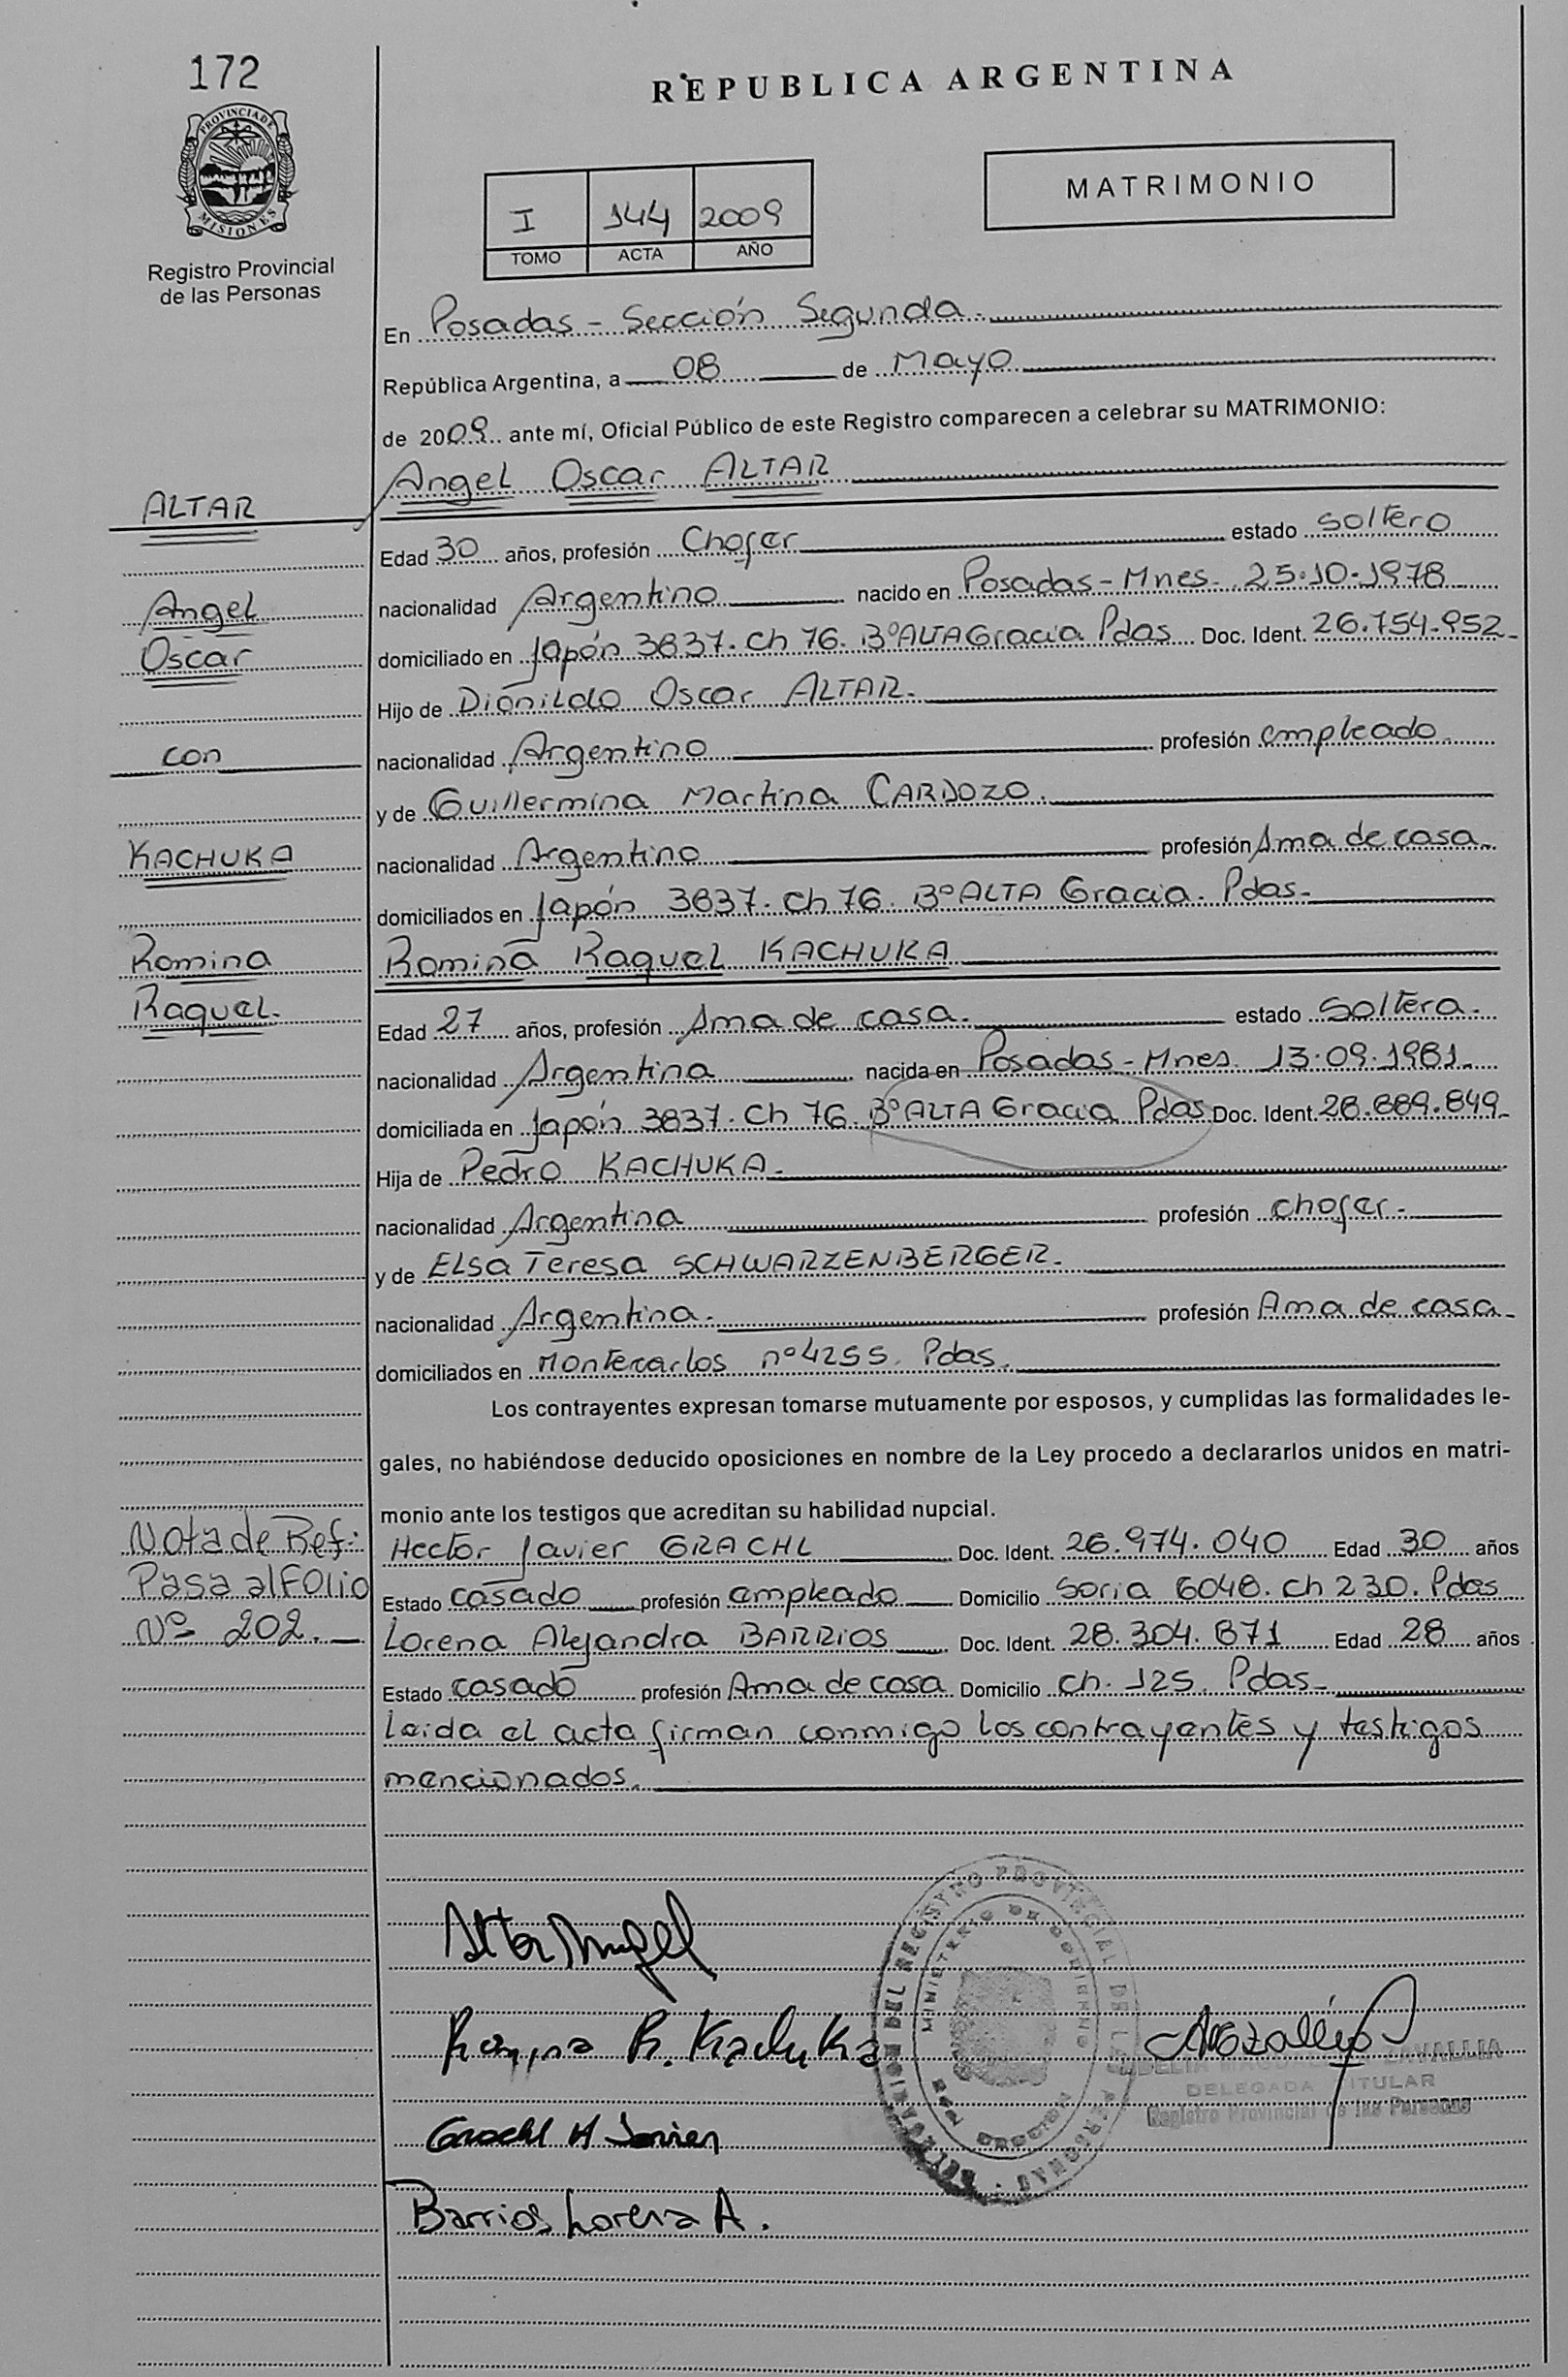 172
REPUBLICA ARGENTINA
PROVINCIA DE
MISIONES
Registro Provincial
de las Personas
I 144 2009
TOMO ACTA AÑO
MATRIMONIO
En Posadas - Sección Segunda.
República Argentina, a 08 de Mayo
de 2009 ante mí, Oficial Público de este Registro comparecen a celebrar su MATRIMONIO:
ALTAR
Angel Oscar ALTAR
Edad 30 años, profesión Chofer estado Soltero
Angel
nacionalidad Argentino nacido en Posadas - Mnes. 25.10.1978
Oscar
domiciliado en Japón 3837. Ch 76. Bº ALTA Gracia Pdas Doc. Ident. 26.754.952
Hijo de Dionildo Oscar ALTAR.
con
nacionalidad Argentino profesión empleado.
y de Guillermina Martina CARDOZO.
KACHUKA
nacionalidad Argentino profesión Ama de casa.
domiciliados en Japón 3837. Ch 76. Bº ALTA Gracia. Pdas.
Romina
Romina Raquel KACHUKA
Raquel.
Edad 27 años, profesión Ama de casa. estado Soltera.
nacionalidad Argentina nacida en Posadas - Mnes. 13.09.1981.
domiciliada en Japón 3837. Ch 76. Bº ALTA Gracia Pdas Doc. Ident. 28.889.849
Hija de Pedro KACHUKA.
nacionalidad Argentina profesión chofer.
y de ELSA Teresa SCHWARZENBERGER.
nacionalidad Argentina. profesión Ama de casa
domiciliados en Montecarlos nº 4255. Pdas.
Los contrayentes expresan tomarse mutuamente por esposos, y cumplidas las formalidades le-
gales, no habiéndose deducido oposiciones en nombre de la Ley procedo a declararlos unidos en matri-
monio ante los testigos que acreditan su habilidad nupcial.
Nota de Ref:
Hector Javier GRACHL Doc. Ident. 26.974.040 Edad 30 años
Pasa al FOlio
Estado casado profesión empleado Domicilio Soria 6048. Ch 230. Pdas
Nº 202.
Lorena Alejandra BARRIOS Doc. Ident. 28.304.871 Edad 28 años
Estado casado profesión Ama de casa Domicilio Ch. 125. Pdas
Leida el acta firman conmigo los contrayentes y testigos
mencionados.
Altar Angel
DELEGACION DEL REGISTRO PROVINCIAL DE LAS PERSONAS
MINISTERIO DE GOBIERNO
Romina R. Kachuka
ZAVALLIA
DELEGADA TITULAR
Registro Provincial de las Personas
Grachl H Javier
Barrios Lorena A.